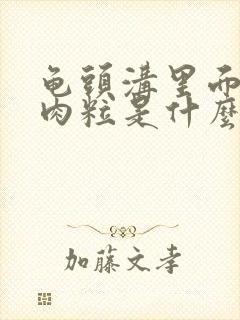 龟頭溝里而
肉粒是什麼
加藤文孝